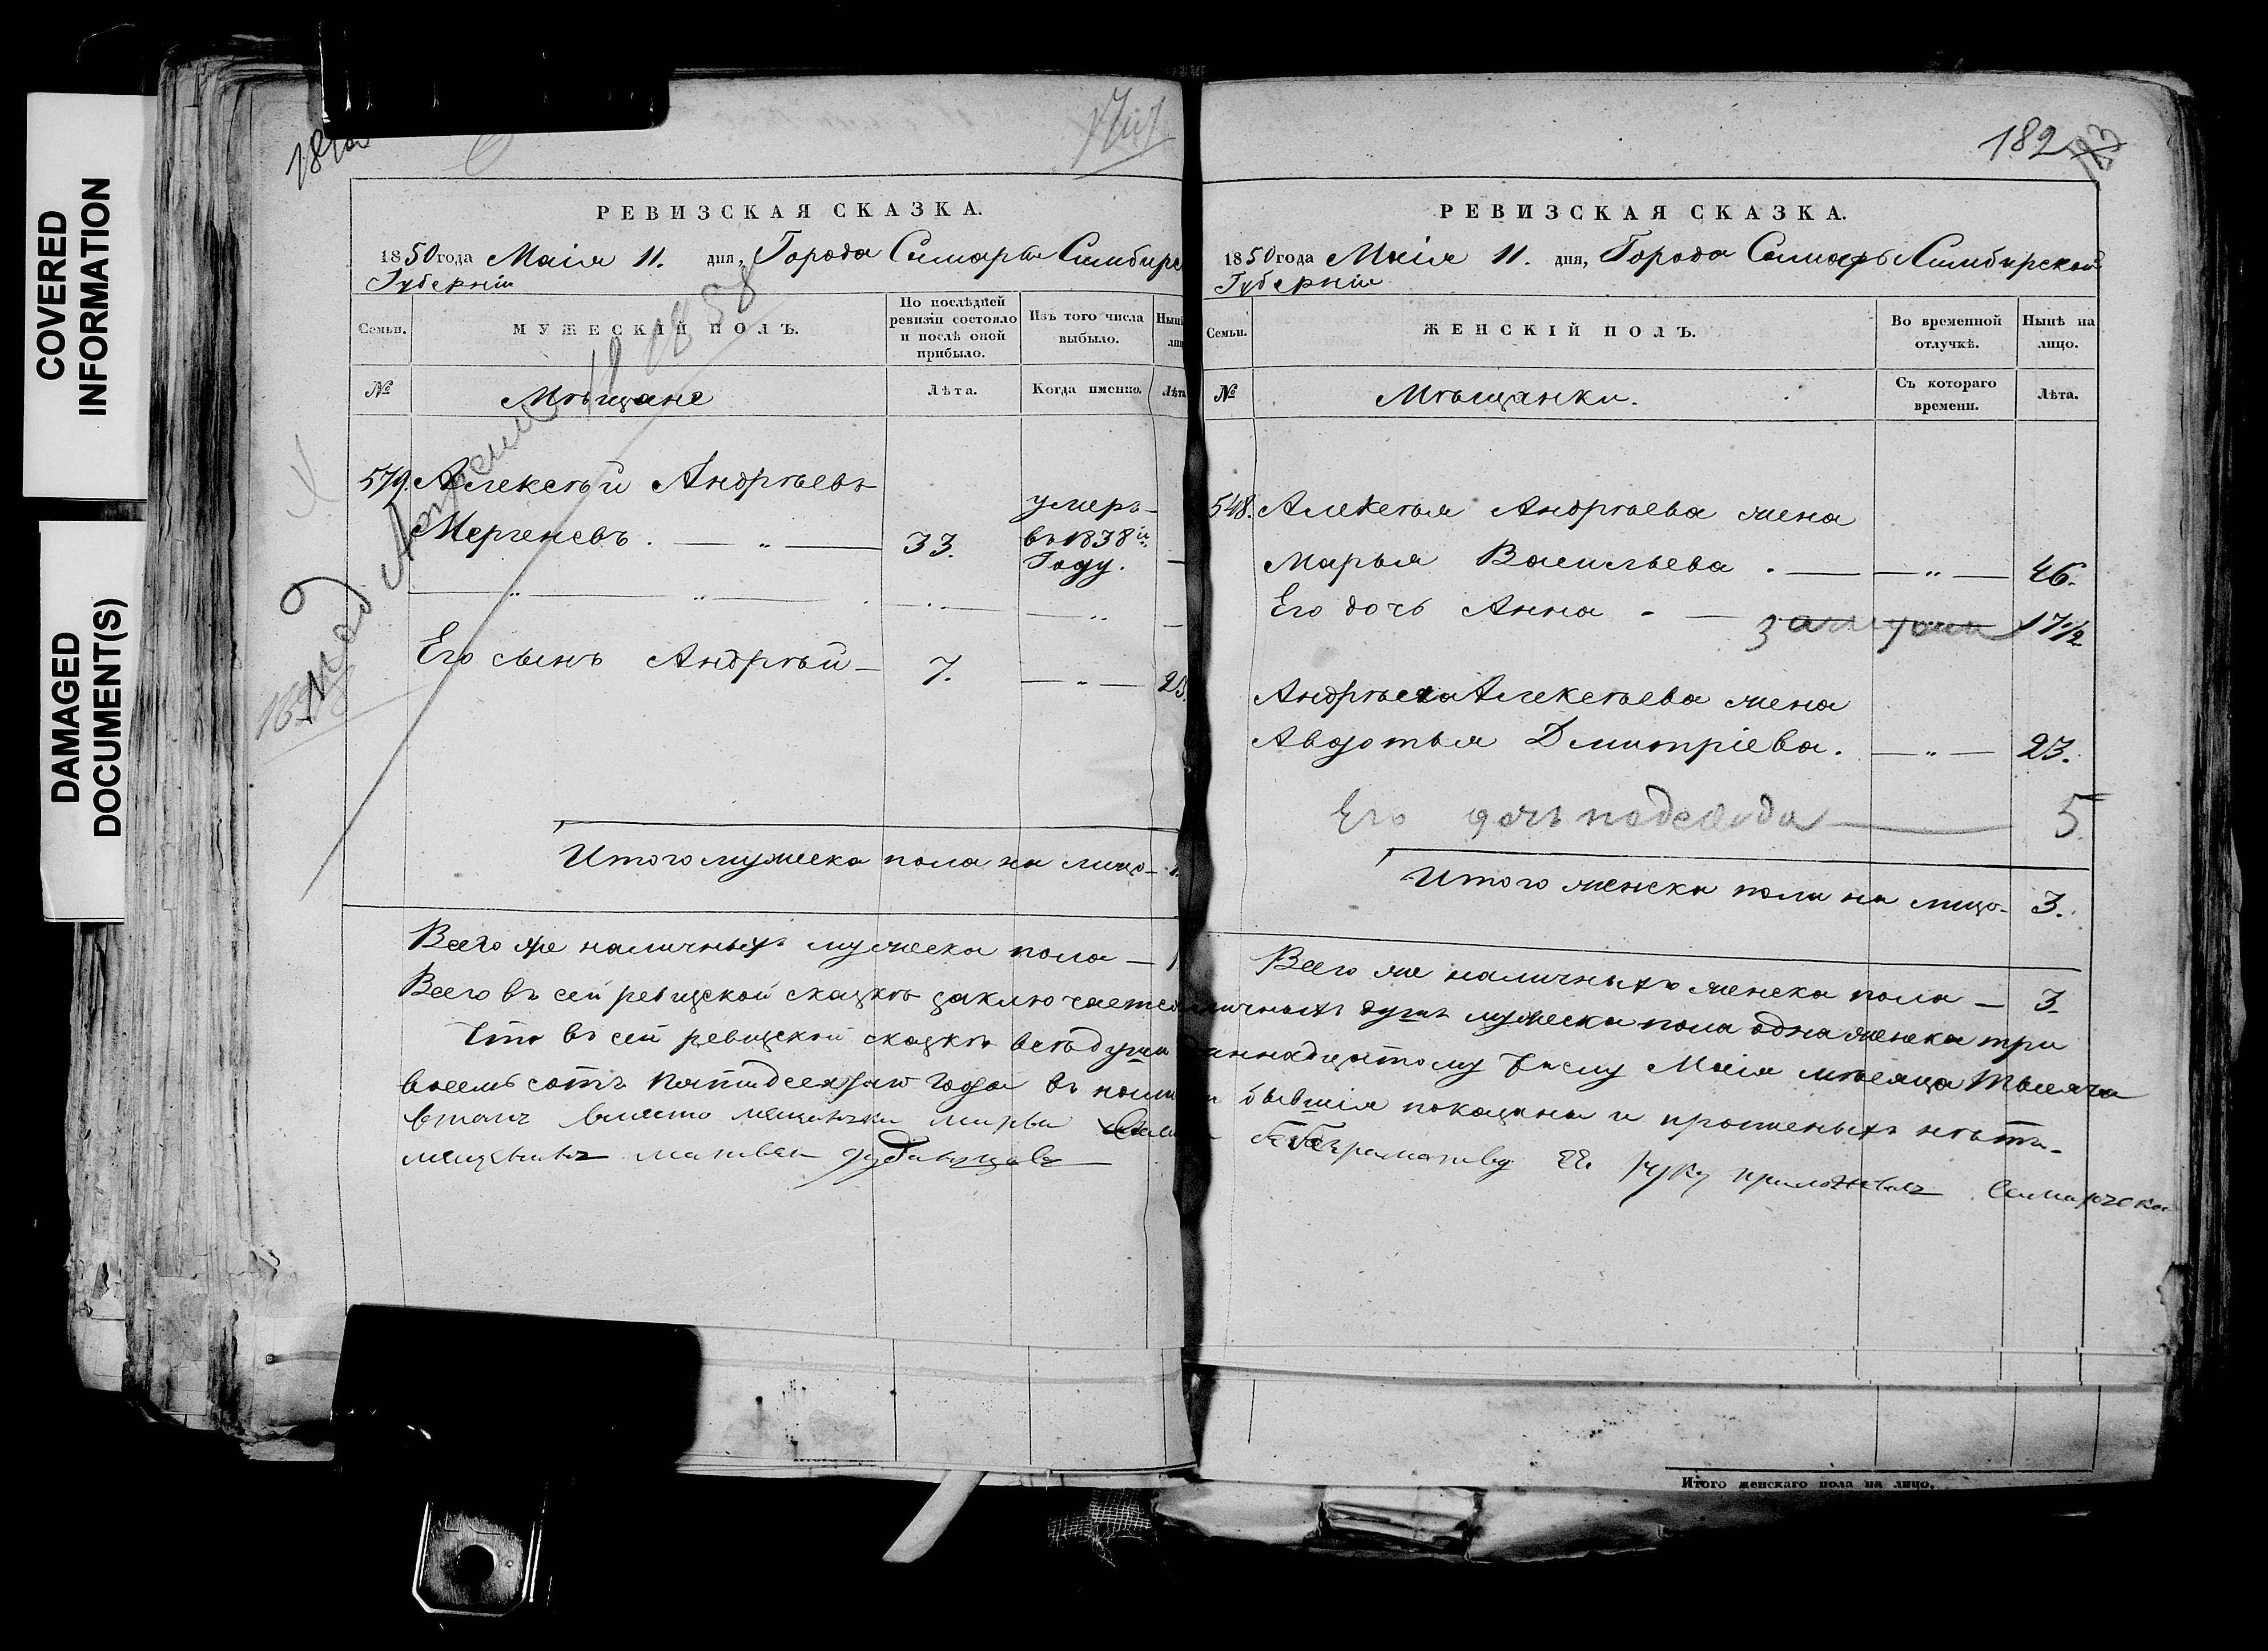 COVERED
INFORMATION
DAMAGED
DOCUMENT(S)
РЕВИЗСКАЯ СКАЗКА.
1850 года Маія 11. дня, Города Самары Симбирс
Губерніи
Семьи.
МУЖЕСКІЙ ПОЛЪ.
По послѣдней
ревизіи состояло
и послѣ оной
прибыло.
Изъ того числа
выбыло.
№
Мѣщане
Лѣта.
Когда именно.
1858
579. Алексѣй Андрѣевъ
Мергеневъ. — „ — 33.
умеръ
въ 1838 й
Году.
Его сынъ Андрѣй — 7. — „ — 23.
Итого мужеска пола на лицо —
Всего же наличныхъ мужеска пола — 1
РЕВИЗСКАЯ СКАЗКА.
182
1850 года Маія 11. дня, Города Самары Симбирской
Губерніи
Семьи.
ЖЕНСКІЙ ПОЛЪ.
Во временной
отлучкѣ.
Нынѣ на
лицо.
№
Мѣщанки.
Съ котораго
времени.
Лѣта.
548. Алексѣя Андрѣева жена
Марья Васильева . — „ — 46.
Его дочь Анна - — замужем 17 1/2
Андрѣя Алексѣева жена
Авдотья Дмитріева. — „ — 23.
Его дочь 5
Итого женска пола на лицо — 3.
Всего же наличныхъ женска пола — 3.
Всего въ сей ревизской сказкѣ заключается наличныхъ душъ мужеска пола одна женска три
Что въ сей ревизской сказкѣ всѣ души надцатому числу Маія мѣсяца тысяча
восемьсотъ пятидесятаго года въ бывшія показаны и прописныхъ нѣтъ.
вместо мещанки Марьи безграмотву ее руку приложилъ Самарской
мещанинъ Матвей
Итого женскаго пола на лицо.